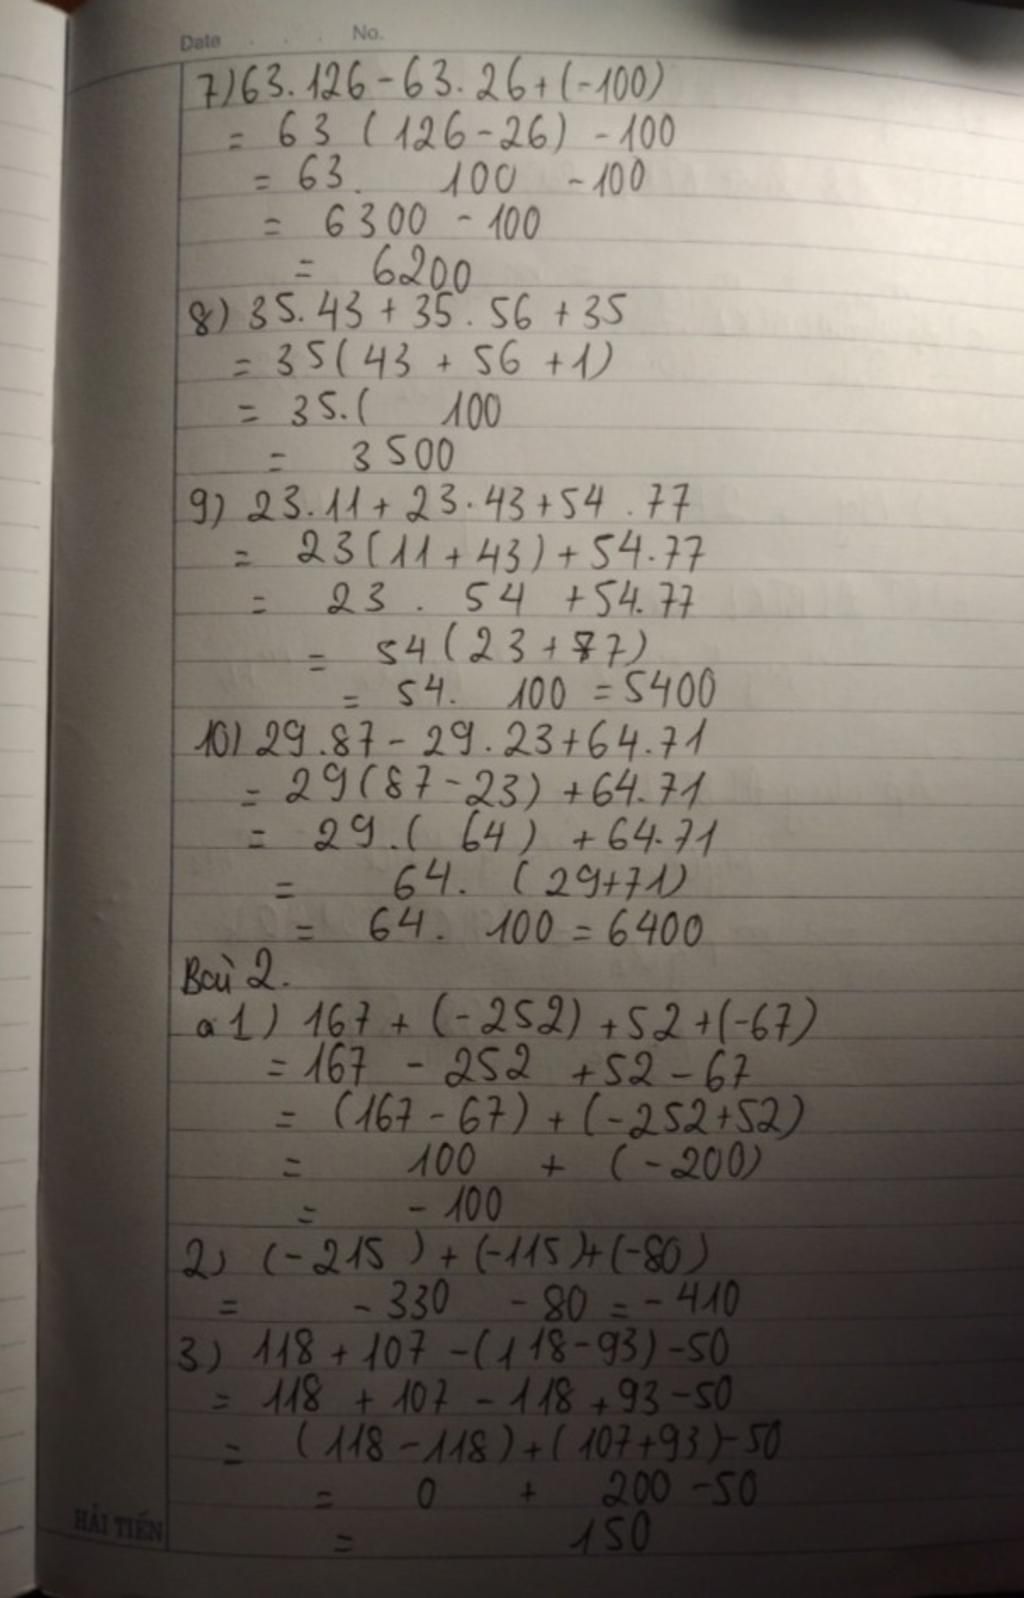 Date . . . No.
7) 63.126 - 63.26 + (-100)
= 63 (126 - 26) - 100
= 63. 100 - 100
= 6300 - 100
= 6200
8) 35.43 + 35.56 + 35
= 35 (43 + 56 + 1)
= 35.( 100
= 3500
9) 23.11 + 23.43 + 54.77
= 23 (11 + 43) + 54.77
= 23 . 54 + 54.77
= 54 (23 + 77)
= 54. 100 = 5400
10) 29.87 - 29.23 + 64.71
= 29 (87 - 23) + 64.71
= 29.( 64 ) + 64.71
= 64. (29+71)
= 64. 100 = 6400
Bài 2.
a 1) 167 + (-252) + 52 + (-67)
= 167 - 252 + 52 - 67
= (167 - 67) + (-252+52)
= 100 + (-200)
= -100
2) (-215) + (-115) + (-80)
= -330 - 80 = -410
3) 118 + 107 - (118 - 93) - 50
= 118 + 107 - 118 + 93 - 50
= (118 - 118) + (107+93) - 50
= 0 + 200 - 50
= 150
HẢI TIẾN